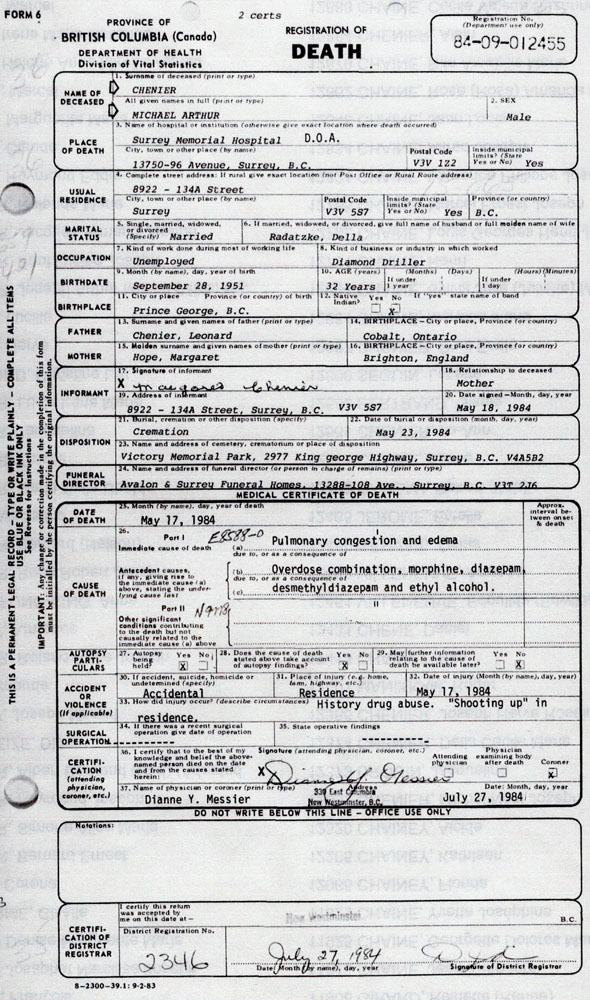 FORM 6
2 certs
PROVINCE OF
BRITISH COLUMBIA (Canada)
DEPARTMENT OF HEALTH
Division of Vital Statistics
REGISTRATION OF
DEATH
Registration No.
(Department use only)
84-09-012455
THIS IS A PERMANENT LEGAL RECORD – TYPE OR WRITE PLAINLY – COMPLETE ALL ITEMS
USE BLUE OR BLACK INK ONLY
See Reverse for Instructions
IMPORTANT: Any change or correction made in the completion of this form
must be initialled by the person certifying the original information.
NAME OF DECEASED
1. Surname of deceased (print or type)
CHENIER
All given names in full (print or type)
MICHAEL ARTHUR
2. SEX
Male
PLACE OF DEATH
3. Name of hospital or institution (otherwise give exact location where death occurred)
Surrey Memorial Hospital D.O.A.
City, town or other place (by name)
13750-96 Avenue, Surrey, B.C.
Postal Code
V3V 1Z2
Inside municipal limits? (State Yes or No)
Yes
USUAL RESIDENCE
4. Complete street address: If rural give exact location (not Post Office or Rural Route address)
8922 - 134A Street
City, town or other place (by name)
Surrey
Postal Code
V3V 5S7
Inside municipal limits? (State Yes or No)
Yes
Province (or country)
B.C.
MARITAL STATUS
5. Single, married, widowed, or divorced (Specify)
Married
6. If married, widowed, or divorced, give full name of husband or full maiden name of wife
Radatzke, Della
OCCUPATION
7. Kind of work done during most of working life
Unemployed
8. Kind of business or industry in which worked
Diamond Driller
BIRTHDATE
9. Month (by name), day, year of birth
September 28, 1951
10. AGE (years)
32 Years
(Months) (Days)
If under 1 year
(Hours) (Minutes)
If under 1 day
BIRTHPLACE
11. City or place Province (or country) of birth
Prince George, B.C.
12. Native Indian? Yes No
X
If "yes" state name of band
FATHER
13. Surname and given names of father (print or type)
Chenier, Leonard
14. BIRTHPLACE – City or place, Province (or country)
Cobalt, Ontario
MOTHER
15. Maiden surname and given names of mother (print or type)
Hope, Margaret
16. BIRTHPLACE – City or place, Province (or country)
Brighton, England
INFORMANT
17. Signature of informant
X Margaret Chenier
18. Relationship to deceased
Mother
19. Address of informant
8922 - 134A Street, Surrey, B.C. V3V 5S7
20. Date signed – Month, day, year
May 18, 1984
DISPOSITION
21. Burial, cremation or other disposition (specify)
Cremation
22. Date of burial or disposition (month, day, year)
May 23, 1984
23. Name and address of cemetery, crematorium or place of disposition
Victory Memorial Park, 2977 King george Highway, Surrey, B.C. V4A5B2
FUNERAL DIRECTOR
24. Name and address of funeral director (or person in charge of remains) (print or type)
Avalon & Surrey Funeral Homes, 13288-108 Ave., Surrey, B.C. V3T 2J6
MEDICAL CERTIFICATE OF DEATH
DATE OF DEATH
25. Month (by name), day, year of death
May 17, 1984
Approx. interval between onset & death
CAUSE OF DEATH
26. Part I
E8588-0
Immediate cause of death
(a) Pulmonary congestion and edema
due to, or as a consequence of
Antecedent causes, if any, giving rise to the immediate cause (a) above, stating the underlying cause last
(b) Overdose combination, morphine, diazepam,
due to, or as a consequence of
(c) desmethyldiazepam and ethyl alcohol.
Part II
Other significant conditions contributing to the death but not causally related to the immediate cause (a) above
"
AUTOPSY PARTICULARS
27. Autopsy being held? Yes No
X
28. Does the cause of death stated above take account of autopsy findings? Yes No
X
29. May further information relating to the cause of death be available later? Yes No
X
ACCIDENT OR VIOLENCE (if applicable)
30. If accident, suicide, homicide or undetermined (specify)
Accidental
31. Place of injury (e.g. home, farm, highway, etc.)
Residence
32. Date of injury (Month (by name), day, year)
May 17, 1984
33. How did injury occur? (describe circumstances)
History drug abuse. "Shooting up" in
residence.
SURGICAL OPERATION
34. If there was a recent surgical operation give date of operation
35. State operative findings
CERTIFICATION (attending physician, coroner, etc.)
36. I certify that to the best of my knowledge and belief the above-named person died on the date and from the causes stated herein:
Signature (attending physician, coroner, etc.)
X Dianne Y. Messier
Attending physician
Physician examining body after death
Coroner
X
37. Name of physician or coroner (print or type)
Dianne Y. Messier
Address
New Westminster, B.C.
Date: Month, day, year
July 27, 1984
DO NOT WRITE BELOW THIS LINE – OFFICE USE ONLY
Notations:
CERTIFICATION OF DISTRICT REGISTRAR
I certify this return was accepted by me on this date at –
New Westminster
B.C.
District Registration No.
2346
July 27, 1984
Date: Month (by name), day, year
Signature of District Registrar
8-2300-39.1: 9-2-83